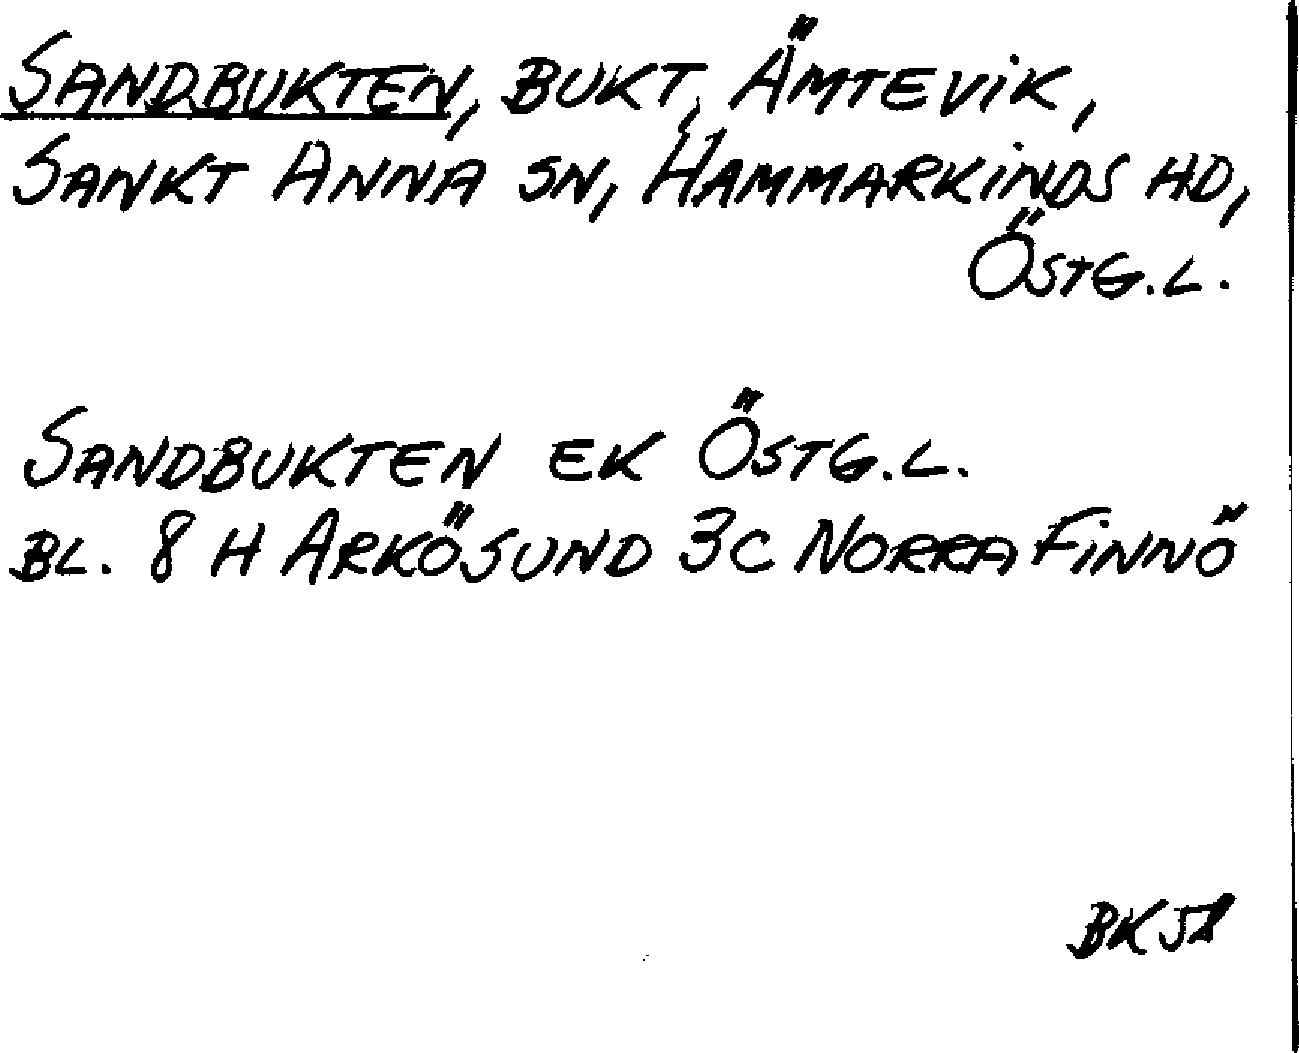 SANDBUKTEN, BUKT, ÄMTEVIK,
SANKT ANNA SN, HAMMARKINDS HD,
ÖSTG.L.
SANDBUKTEN EK ÖSTG.L.
BL. 8 H ARKÖSUND 3C NORRA FINNÖ
BK